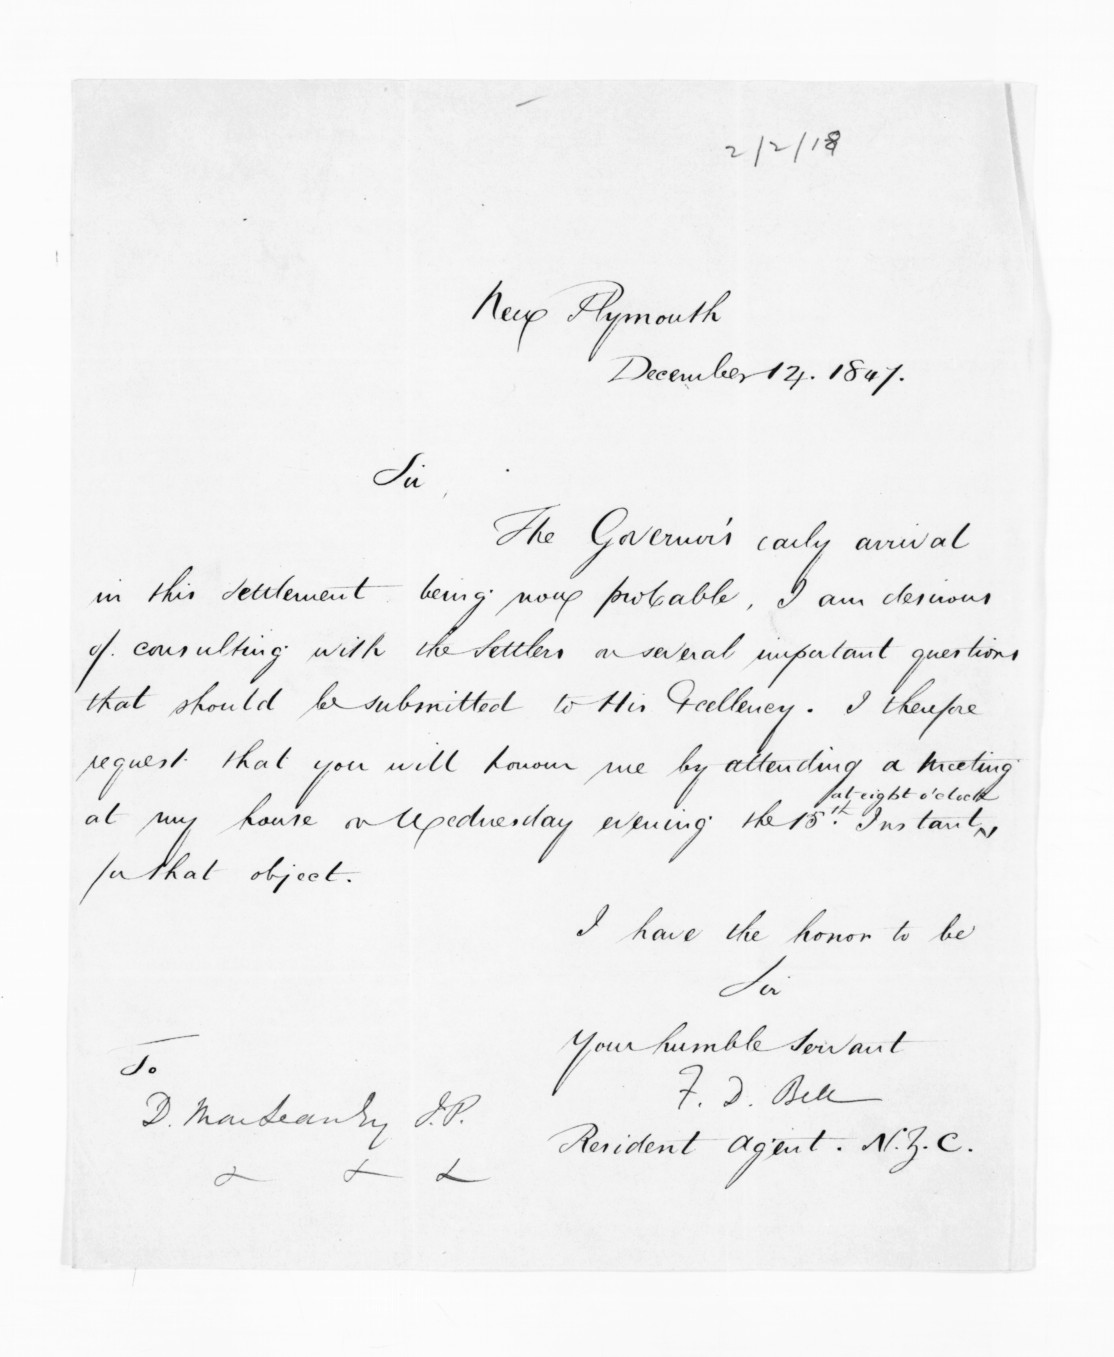 2/2/18
New Plymouth
December 14. 1847.
Sir
The Governor's early arrival
in this settlement being now probable, I am desirous
of consulting with the Settlers on several important questions
that should be submitted to His Excellency. I therefore
request that you will honour me by attending a meeting
at eight o'clock
at my house on Wednesday evening the 15th. Instant,
for that object.
I have the honor to be
Sir
Your humble Servant
F. D. Bell
Resident Agent. N.Z.C.
To
D. MacLean Esq J.P.